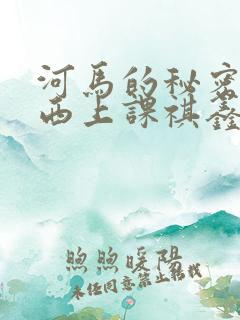 河马的秘密
西上课祺鑫
煦煦暖阳
未经同意禁止转载